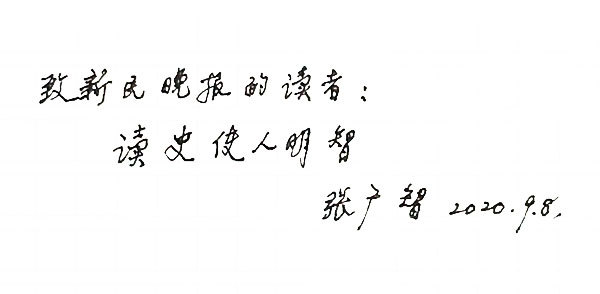 致新民晚报的读者：
读史使人明智
张广智 2020.9.8.